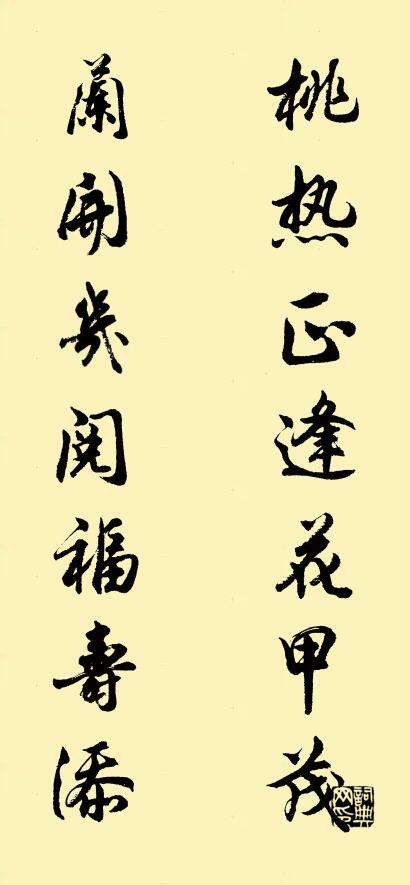 桃热正逢花甲茂
蘭開幾閱福壽添
詞典网印